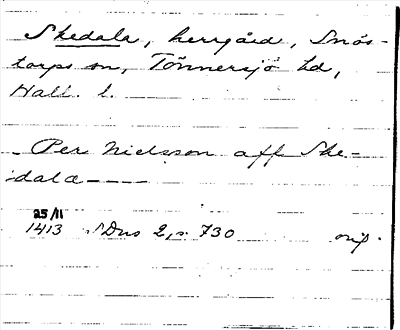 Skedala, herrgård, Snös-
torps sn, Tönnersjö hd,
Hall. l.
Per Nielsson aff Ske-
dala
25/11
1413 SDns 2, s. 730 orig.